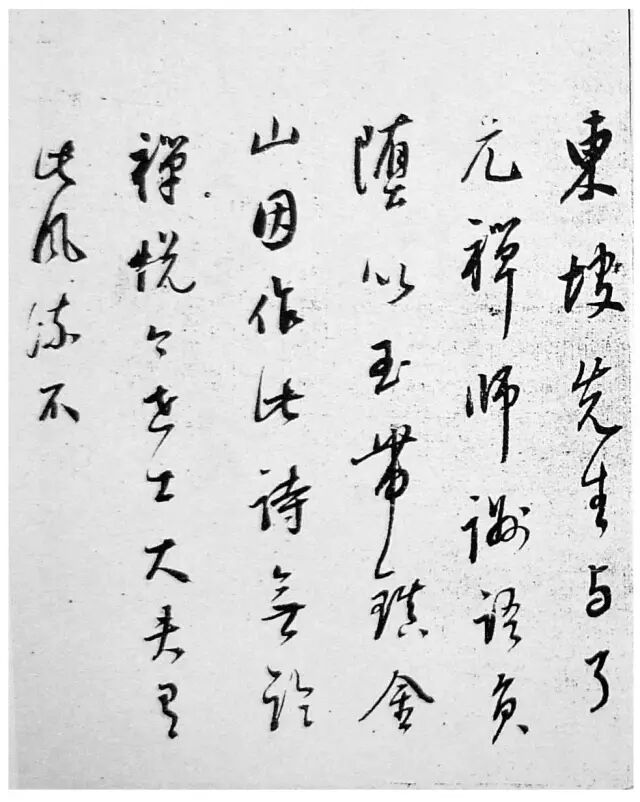 東坡先生与了
元禪師詶語負
墮以玉帶鎮金
山因作此詩無論
禪悅今世士大夫有
此風流不